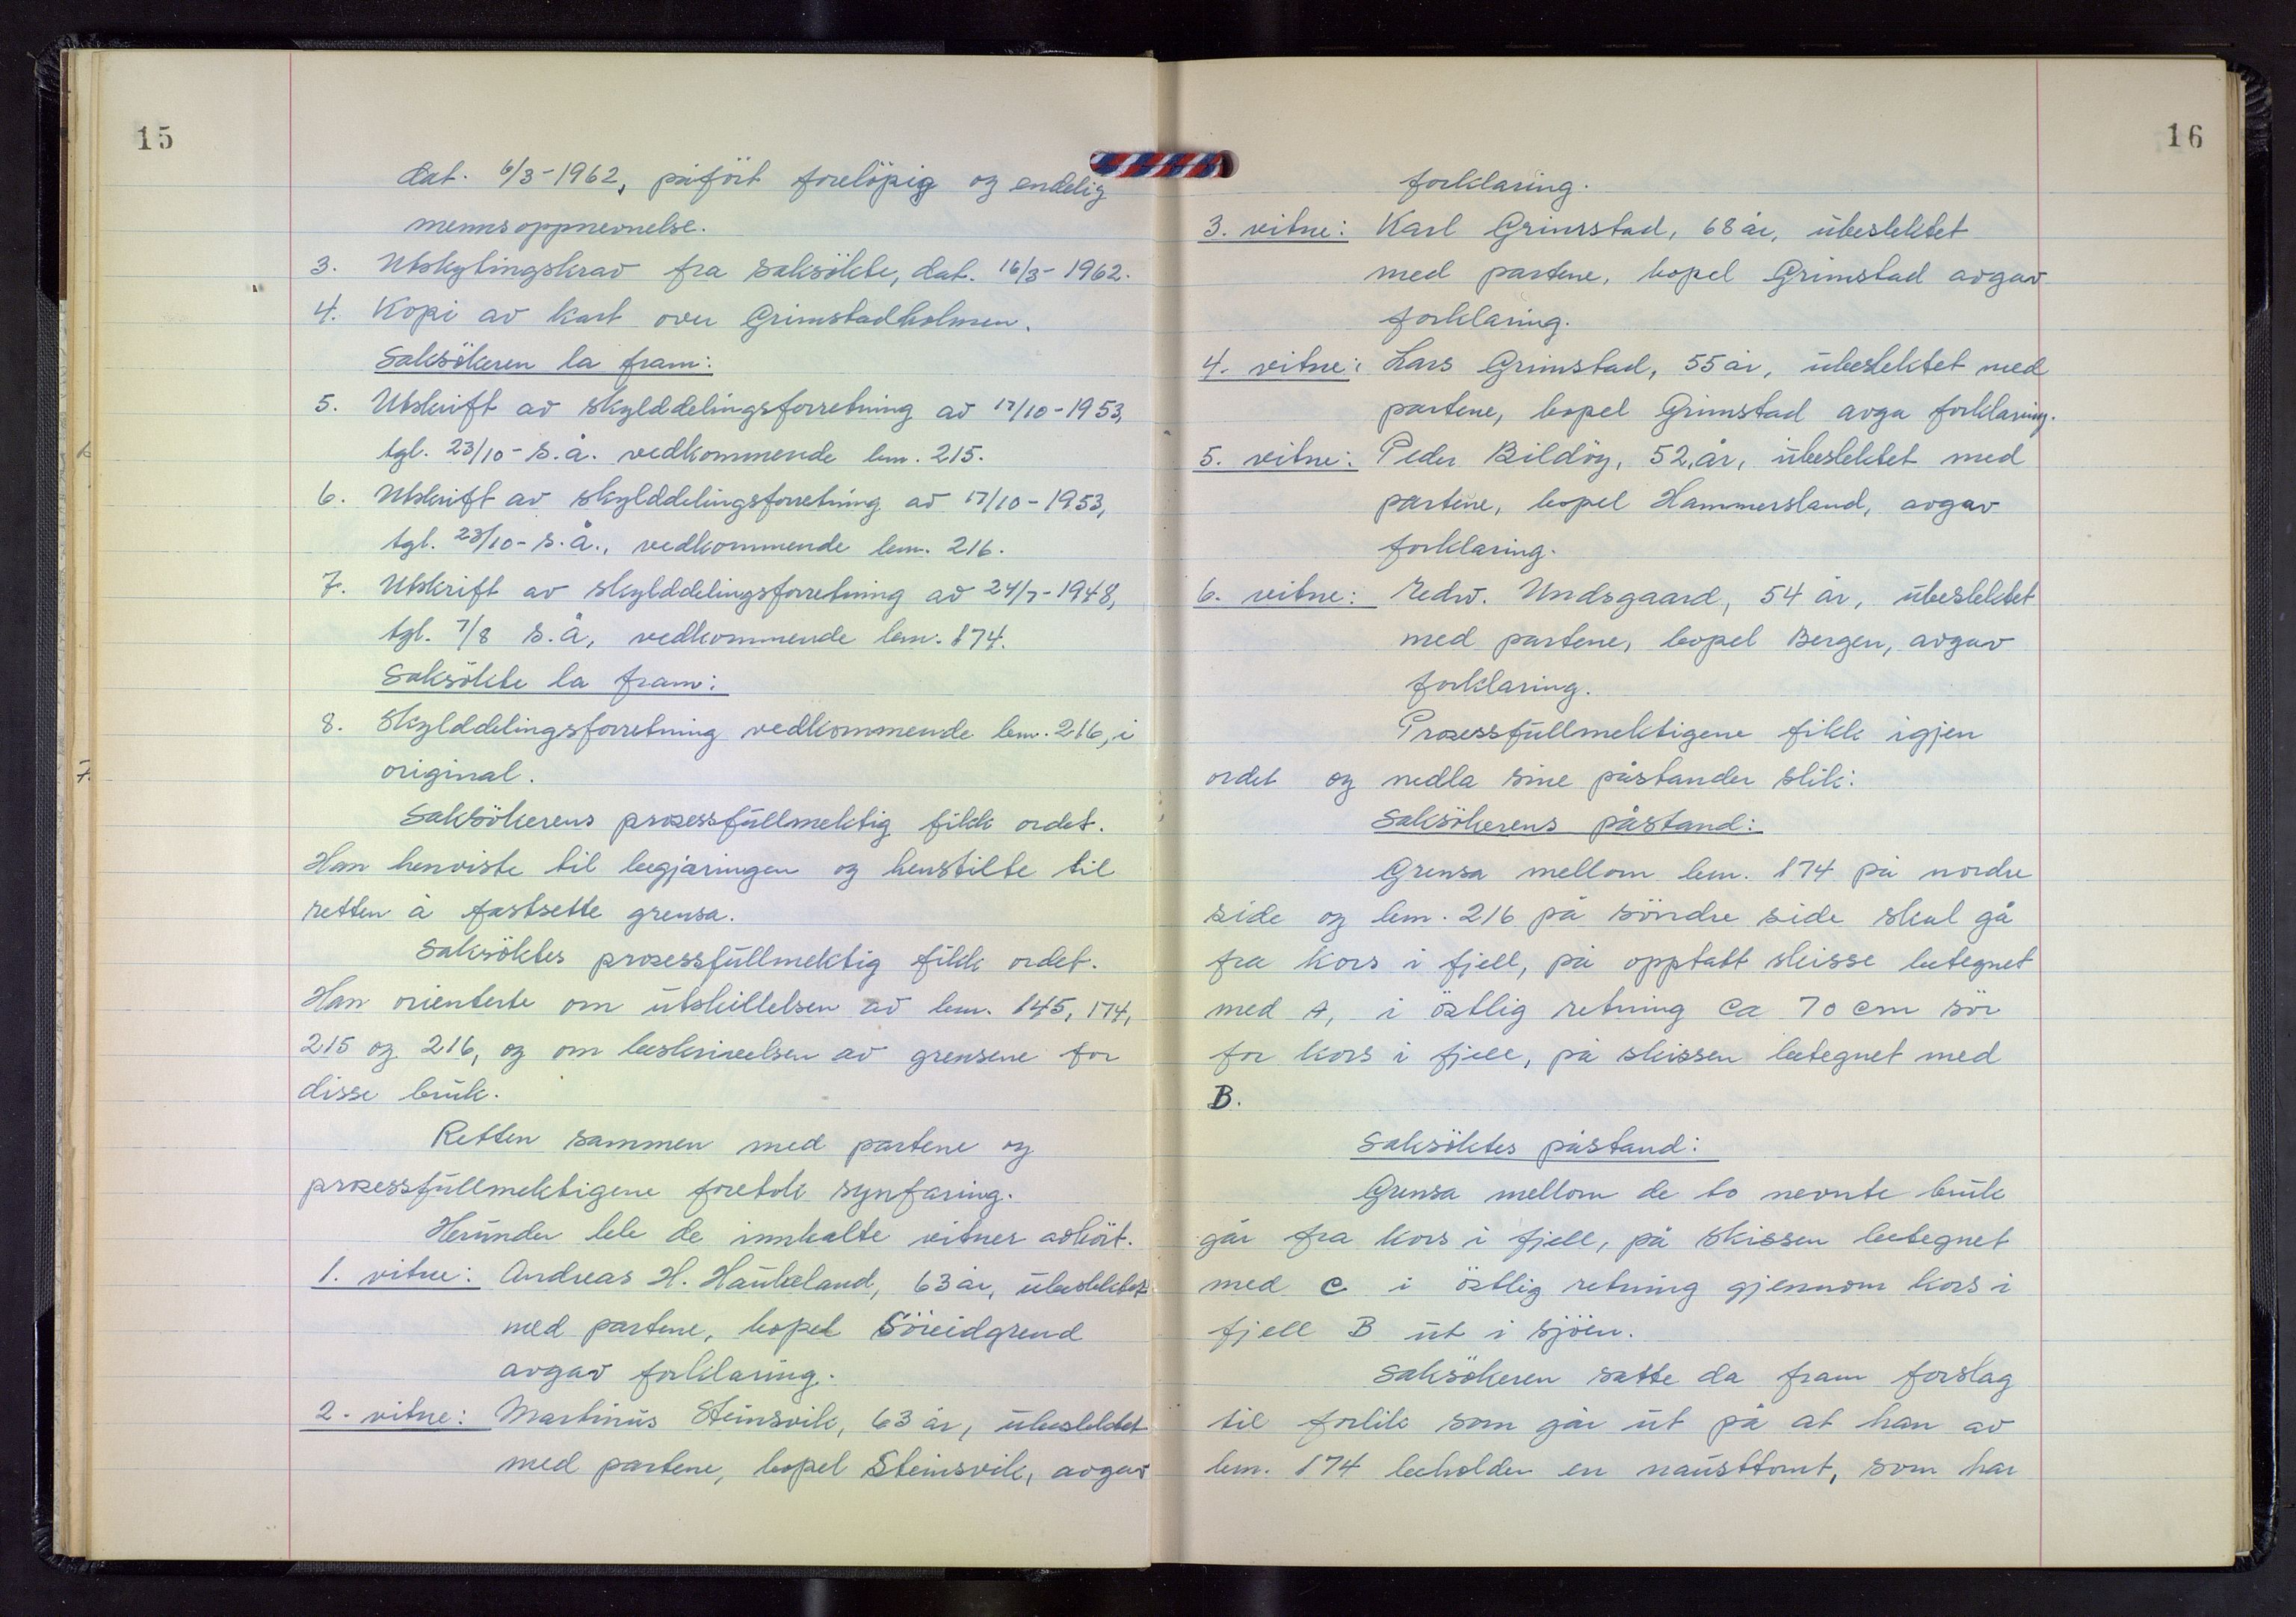 15
dat. 6/3-1962, påfört forelöpig og endelig
mennsoppnevnelse.
3. Utskytingskrav fra saksökte, dat. 16/3-1962.
4. Kopi av kart over Grimstadholmen.
Saksökeren la fram:
5. Utskrift av skylddelingsforretning av 17/10-1953,
tgl. 23/10- s.å. vedkommende bnr. 215.
6. Utskrift av skylddelingsforretning av 17/10-1953,
tgl. 23/10- s.å., vedkommende bnr. 216.
7. Utskrift av skylddelingsforretning av 24/7-1948,
tgl. 7/8 s.å, vedkommende bnr. 174.
Saksökte la fram:
8. Skylddelingsforretning vedkommende bnr. 216, i
original.
Saksökerens prosessfullmektig fikk ordet.
Han henviste til begjæringen og henstilte til
retten å fastsette grensa.
Saksöktes prosessfullmektig fikk ordet.
Han orienterte om utskillelsen av bnr. 145, 174,
215 og 216, og om beskrivelsen av grensene for
disse bruk.
Retten sammen med partene og
prosessfullmektigene foretok synfaring.
Herunder ble de innkalte vitner avhört.
1. vitne: Andreas H. Haukeland, 63 år, ubeslektet
med partene, bopel Söreidgrend
avgav forklaring.
2. vitne: Martinus Steinsvik, 63 år, ubeslektet
med partene, bopel Steinsvik, avgav
16
forklaring.
3. vitne: Karl Grimstad, 68 år, ubeslektet
med partene, bopel Grimstad avgav
forklaring.
4. vitne: Lars Grimstad, 55 år, ubeslektet med
partene, bopel Grimstad avga forklaring.
5. vitne: Peder Bildöy, 52 år, ubeslektet med
partene, bopel Hammersland, avgav
forklaring.
6. vitne: Redv. Undsgaard, 54 år, ubeslektet
med partene, bopel Bergen, avgav
forklaring.
Prosessfullmektigene fikk igjen
ordet og nedla sine påstander slik:
Saksökerens påstand:
Grensa mellom bnr. 174 på nordre
side og bnr. 216 på söndre side skal gå
fra kors i fjell, på opptatt skisse betegnet
med A, i östlig retning ca 70 cm sör
for kors i fjell, på skissen betegnet med
B.
Saksöktes påstand:
Grensa mellom de to nevnte bruk
går fra kors i fjell, på skissen betegnet
med C i östlig retning gjennom kors i
fjell B ut i sjöen.
Saksökeren satte da fram forslag
til forlik som går ut på at han av
bnr. 174 beholder en nausttomt, som har